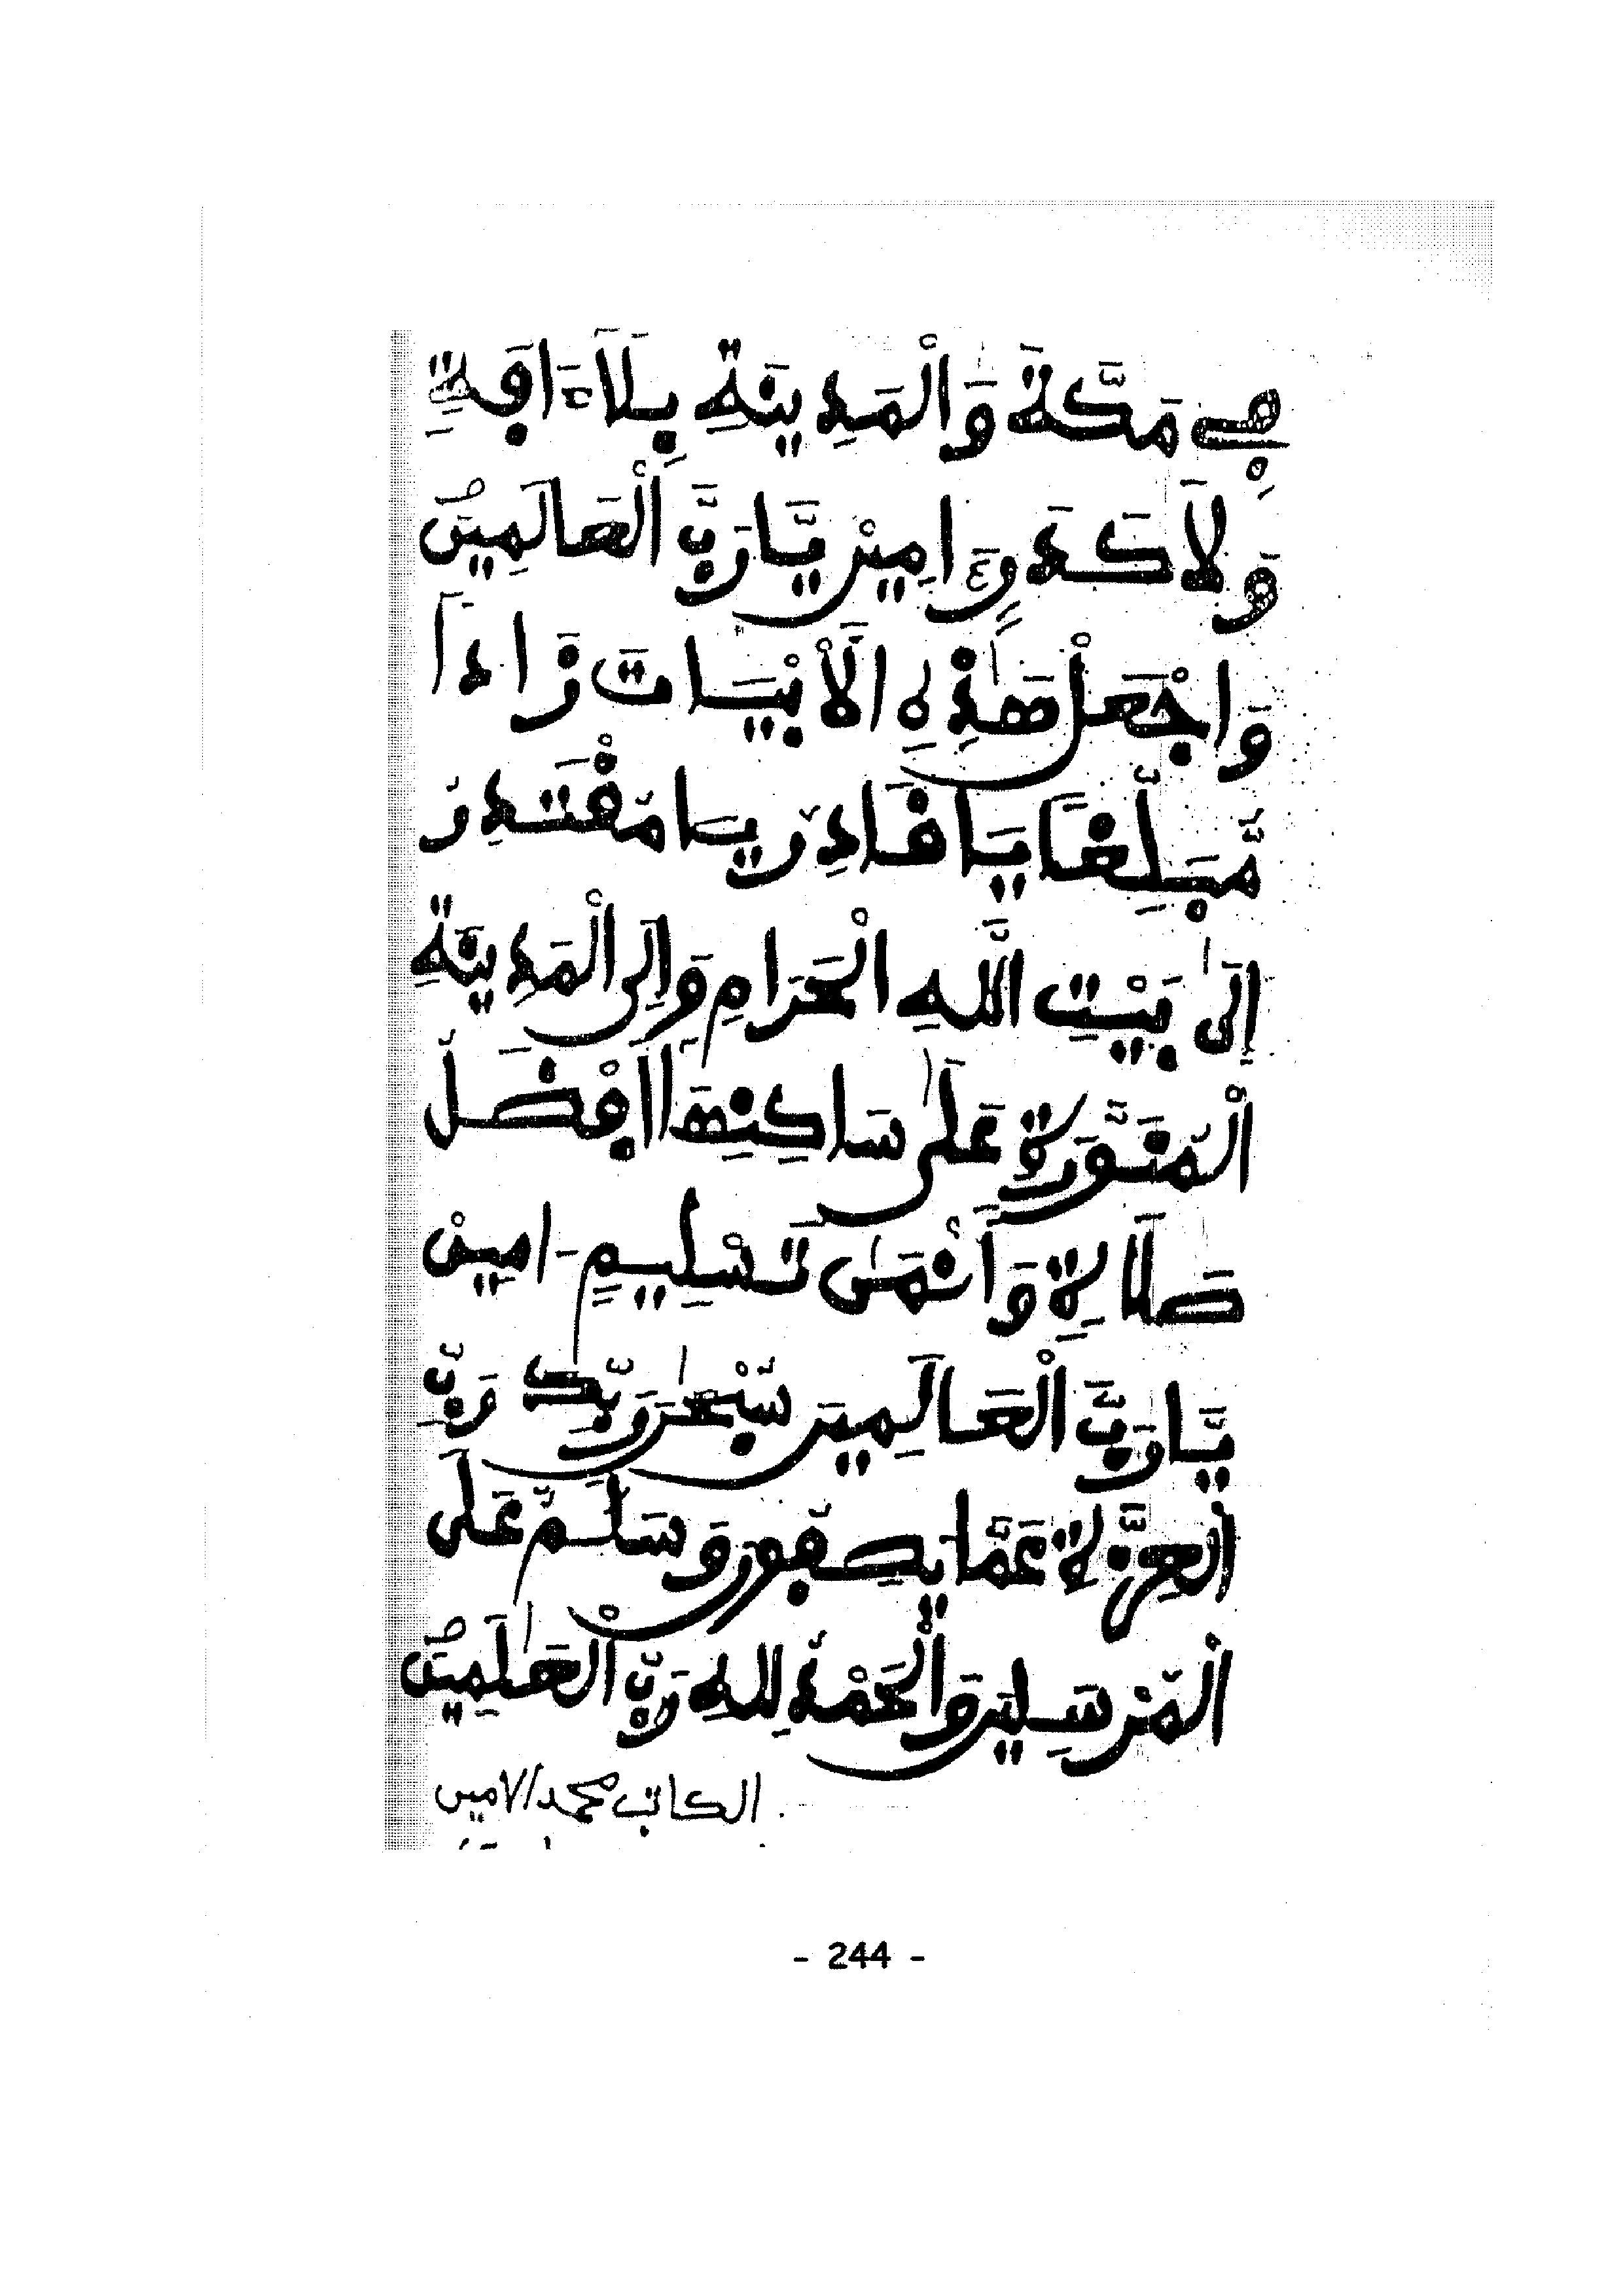 فِي مَكَّةَ وَالْمَدِينَةِ بِلَا ءَافَةٍ
وَلَا كَدَرٍ ءَامِينْ يَّا رَبَّ الْعَالَمِينَ
وَاجْعَلْ هَٰذِهِ الْأَبْيَاتَ زَاداً
مُّبَلِّغاً يَا قَادِرُ يَا مُقْتَدِرُ
إِلَىٰ بَيْتِ اللَّهِ الْحَرَامِ وَإِلَى الْمَدِينَةِ
الْمُنَوَّرَةِ عَلَىٰ سَاكِنِهَا أَفْضَلُ
صَلَاةٍ وَأَنْمَىٰ تَسْلِيمٍ ءَامِينْ
يَّا رَبَّ الْعَالَمِينَ سُبْحَٰنَ رَبِّكَ رَبِّ
الْعِزَّةِ عَمَّا يَصِفُونَ وَسَلَٰمٌ عَلَى
الْمُرْسَلِينَ وَالْحَمْدُ لِلهِ رَبِّ الْعَٰلَمِينَ
الكاتب محمد الامين
- 244 -